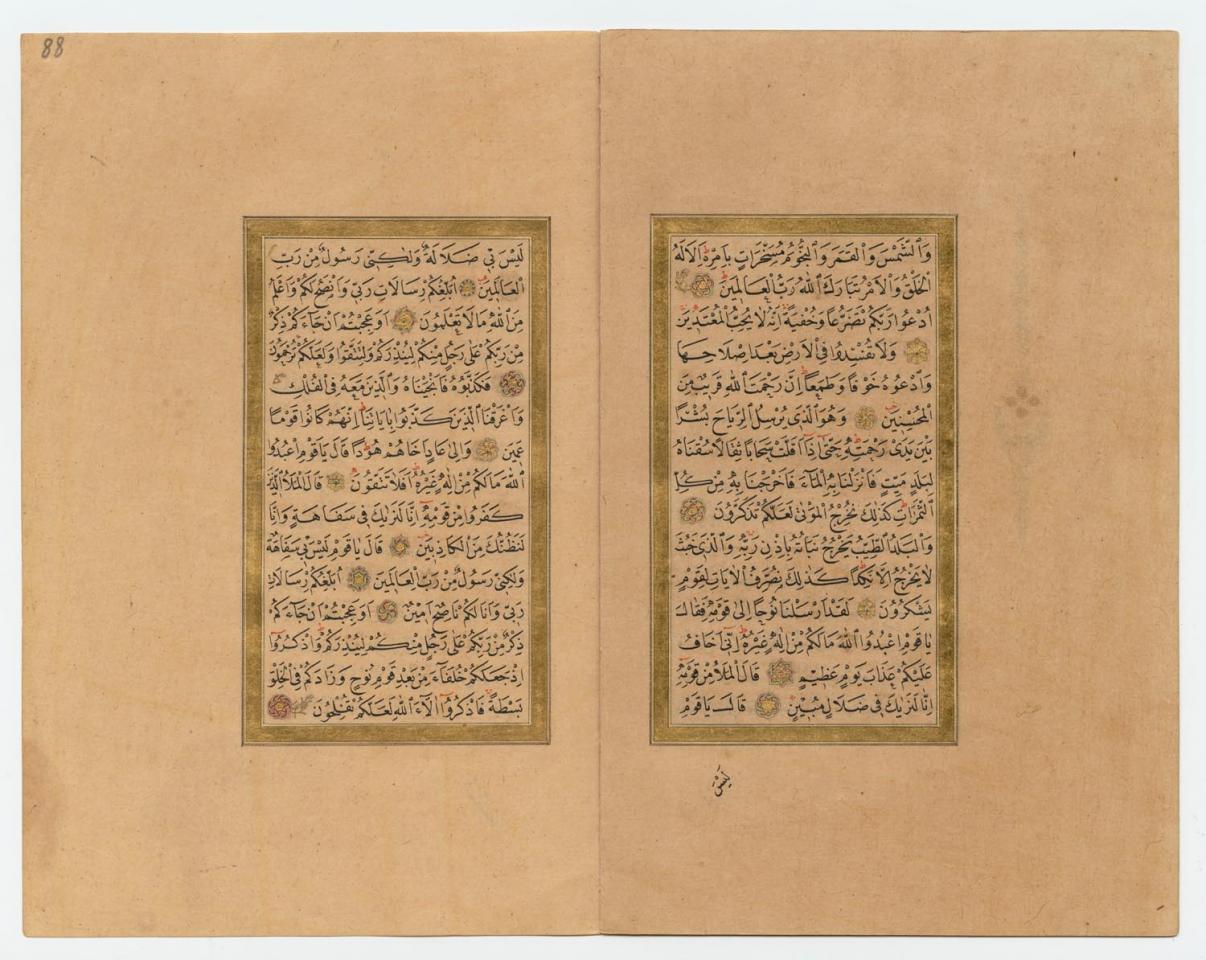 وَالشَّمْسَ وَالْقَمَرَ وَالنُّجُومَ مُسَخَّرَاتٍ بِاَمْرِهٖ اَلَا لَهُ
الْخَلْقُ وَالْاَمْرُ تَبَارَكَ اللّٰهُ رَبُّ الْعَالَمِينَ
اُدْعُوا رَبَّكُمْ تَضَرُّعًا وَخُفْيَةً اِنَّهُ لَا يُحِبُّ الْمُعْتَدِينَ
وَلَا تُفْسِدُوا فِى الْاَرْضِ بَعْدَ اِصْلَاحِهَا
وَادْعُوهُ خَوْفًا وَطَمَعًا اِنَّ رَحْمَتَ اللّٰهِ قَرِيبٌ مِنَ
الْمُحْسِنِينَ وَهُوَ الَّذِى يُرْسِلُ الرِّيَاحَ بُشْرًا
بَيْنَ يَدَىْ رَحْمَتِهٖ حَتّٰى اِذَا اَقَلَّتْ سَحَابًا ثِقَالًا سُقْنَاهُ
لِبَلَدٍ مَيِّتٍ فَاَنْزَلْنَا بِهِ الْمَاءَ فَاَخْرَجْنَا بِهٖ مِنْ كُلِّ
الثَّمَرَاتِ كَذٰلِكَ نُخْرِجُ الْمَوْتٰى لَعَلَّكُمْ تَذَكَّرُونَ
وَالْبَلَدُ الطَّيِّبُ يَخْرُجُ نَبَاتُهُ بِاِذْنِ رَبِّهٖ وَالَّذِى خَبُثَ
لَا يَخْرُجُ اِلَّا نَكِدًا كَذٰلِكَ نُصَرِّفُ الْاٰيَاتِ لِقَوْمٍ
يَشْكُرُونَ لَقَدْ اَرْسَلْنَا نُوحًا اِلٰى قَوْمِهٖ فَقَالَ
يَا قَوْمِ اعْبُدُوا اللّٰهَ مَا لَكُمْ مِنْ اِلٰهٍ غَيْرُهُ اِنِّى اَخَافُ
عَلَيْكُمْ عَذَابَ يَوْمٍ عَظِيمٍ قَالَ الْمَلَاُ مِنْ قَوْمِهٖ
اِنَّا لَنَرٰيكَ فِى ضَلَالٍ مُبِينٍ قَالَ يَا قَوْمِ
لَيْسَ
88
لَيْسَ بِى ضَلَالَةٌ وَلٰكِنِّى رَسُولٌ مِنْ رَبِّ
الْعَالَمِينَ اُبَلِّغُكُمْ رِسَالَاتِ رَبِّى وَاَنْصَحُ لَكُمْ وَاَعْلَمُ
مِنَ اللّٰهِ مَا لَا تَعْلَمُونَ اَوَعَجِبْتُمْ اَنْ جَاءَكُمْ ذِكْرٌ
مِنْ رَبِّكُمْ عَلٰى رَجُلٍ مِنْكُمْ لِيُنْذِرَكُمْ وَلِتَتَّقُوا وَلَعَلَّكُمْ تُرْحَمُونَ
فَكَذَّبُوهُ فَاَنْجَيْنَاهُ وَالَّذِينَ مَعَهُ فِى الْفُلْكِ
وَاَغْرَقْنَا الَّذِينَ كَذَّبُوا بِاٰيَاتِنَا اِنَّهُمْ كَانُوا قَوْمًا
عَمِينَ وَاِلٰى عَادٍ اَخَاهُمْ هُودًا قَالَ يَا قَوْمِ اعْبُدُوا
اللّٰهَ مَا لَكُمْ مِنْ اِلٰهٍ غَيْرُهُ اَفَلَا تَتَّقُونَ قَالَ الْمَلَاُ الَّذِينَ
كَفَرُوا مِنْ قَوْمِهٖ اِنَّا لَنَرٰيكَ فِى سَفَاهَةٍ وَاِنَّا
لَنَظُنُّكَ مِنَ الْكَاذِبِينَ قَالَ يَا قَوْمِ لَيْسَ بِى سَفَاهَةٌ
وَلٰكِنِّى رَسُولٌ مِنْ رَبِّ الْعَالَمِينَ اُبَلِّغُكُمْ رِسَالَاتِ
رَبِّى وَاَنَا لَكُمْ نَاصِحٌ اَمِينٌ اَوَعَجِبْتُمْ اَنْ جَاءَكُمْ
ذِكْرٌ مِنْ رَبِّكُمْ عَلٰى رَجُلٍ مِنْكُمْ لِيُنْذِرَكُمْ وَاذْكُرُوا
اِذْ جَعَلَكُمْ خُلَفَاءَ مِنْ بَعْدِ قَوْمِ نُوحٍ وَزَادَكُمْ فِى الْخَلْقِ
بَسْطَةً فَاذْكُرُوا اٰلَاءَ اللّٰهِ لَعَلَّكُمْ تُفْلِحُونَ